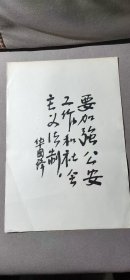 要加强公安
工作和社会
主义法制。
华国锋